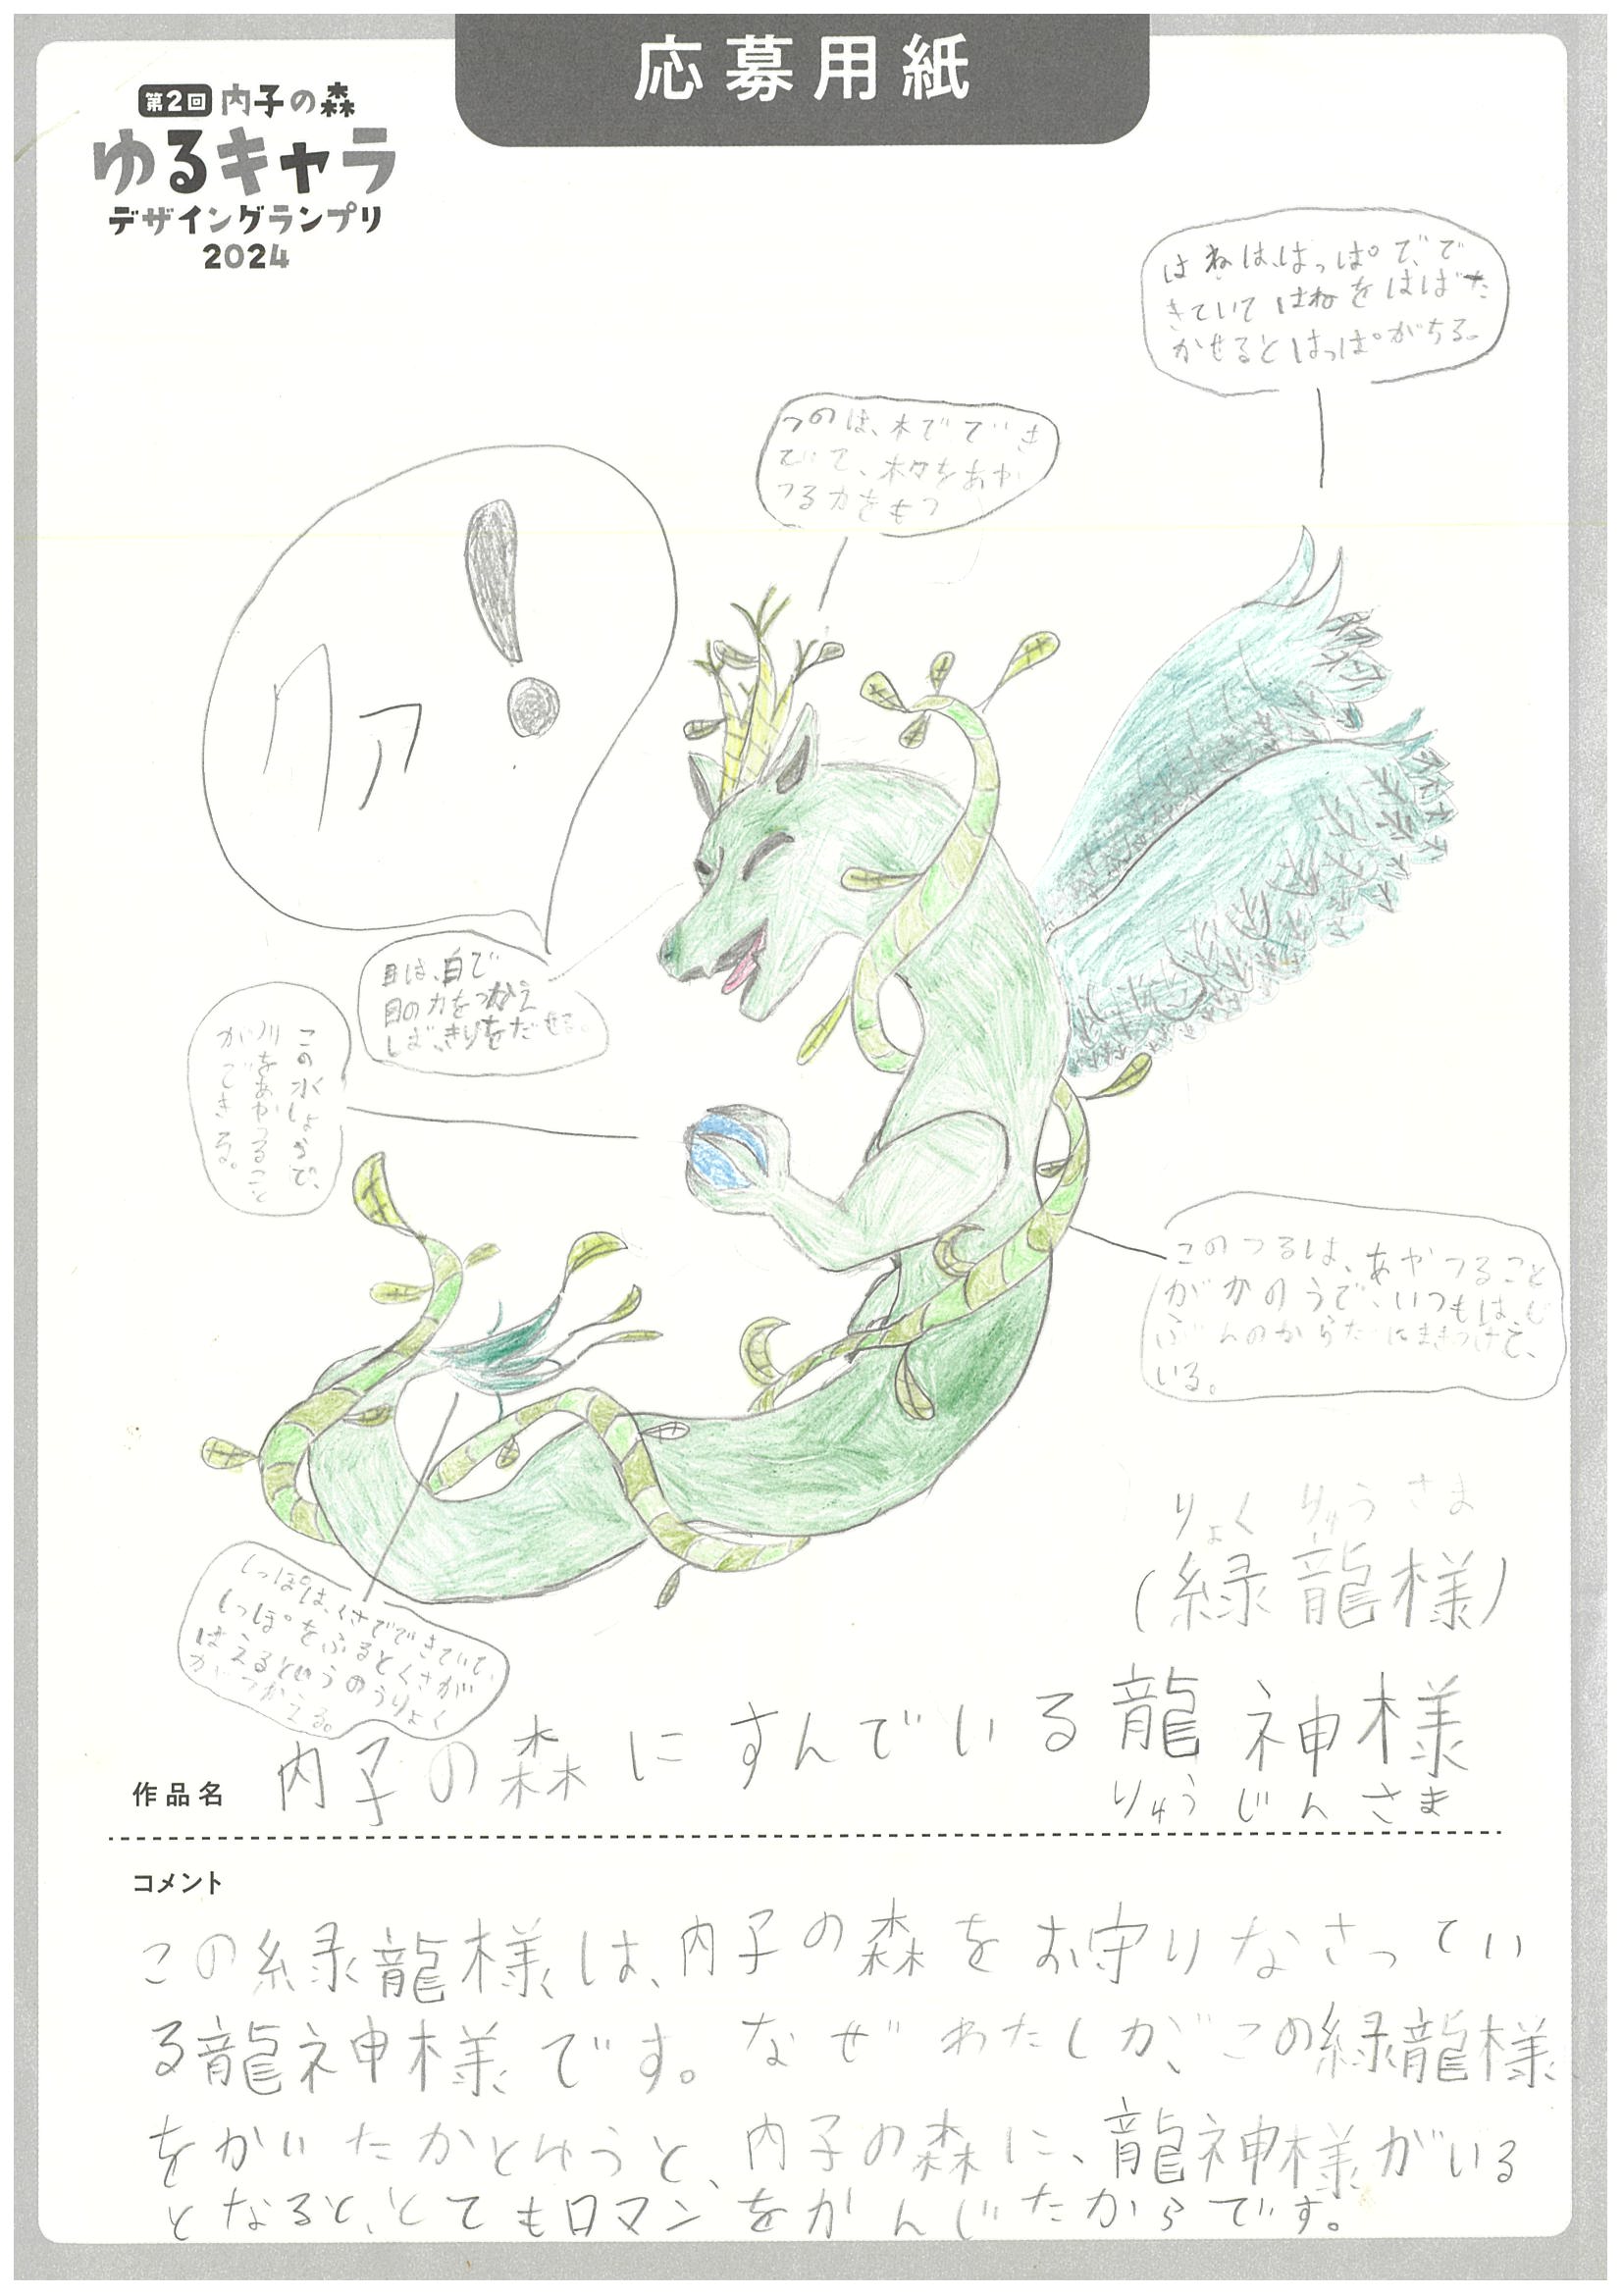 応募用紙
第2回 内子の森
ゆるキャラ
デザイングランプリ
2024
はねは、はっぱで、で
きていてはねをはばた
かせるとはっぱがちる。
つのは、木でできていて、木々をあや
つる力をもつ
クァ!
目は、目で
目の力をつかえ
ば、きりをだせる。
この水しょうで、
川をあやつること
ができる。
このつるは、あやつること
がかのうで、いつもはじ
ぶんのからだにまきつけて、
いる。
しっぽは、くさでできていて、
しっぽをふるとくさが
はえるというのうりょく
がつかえる。
りょくりゅうさま
(緑龍様)
作品名 内子の森にすんでいる龍神様
りゅうじんさま
コメント
この緑龍様は、内子の森をお守りなさってい
る龍神様です。なぜわたしが、この緑龍様
をかいたかとゆうと、内子の森に、龍神様がいる
となると、とてもロマンをかんじたからです。